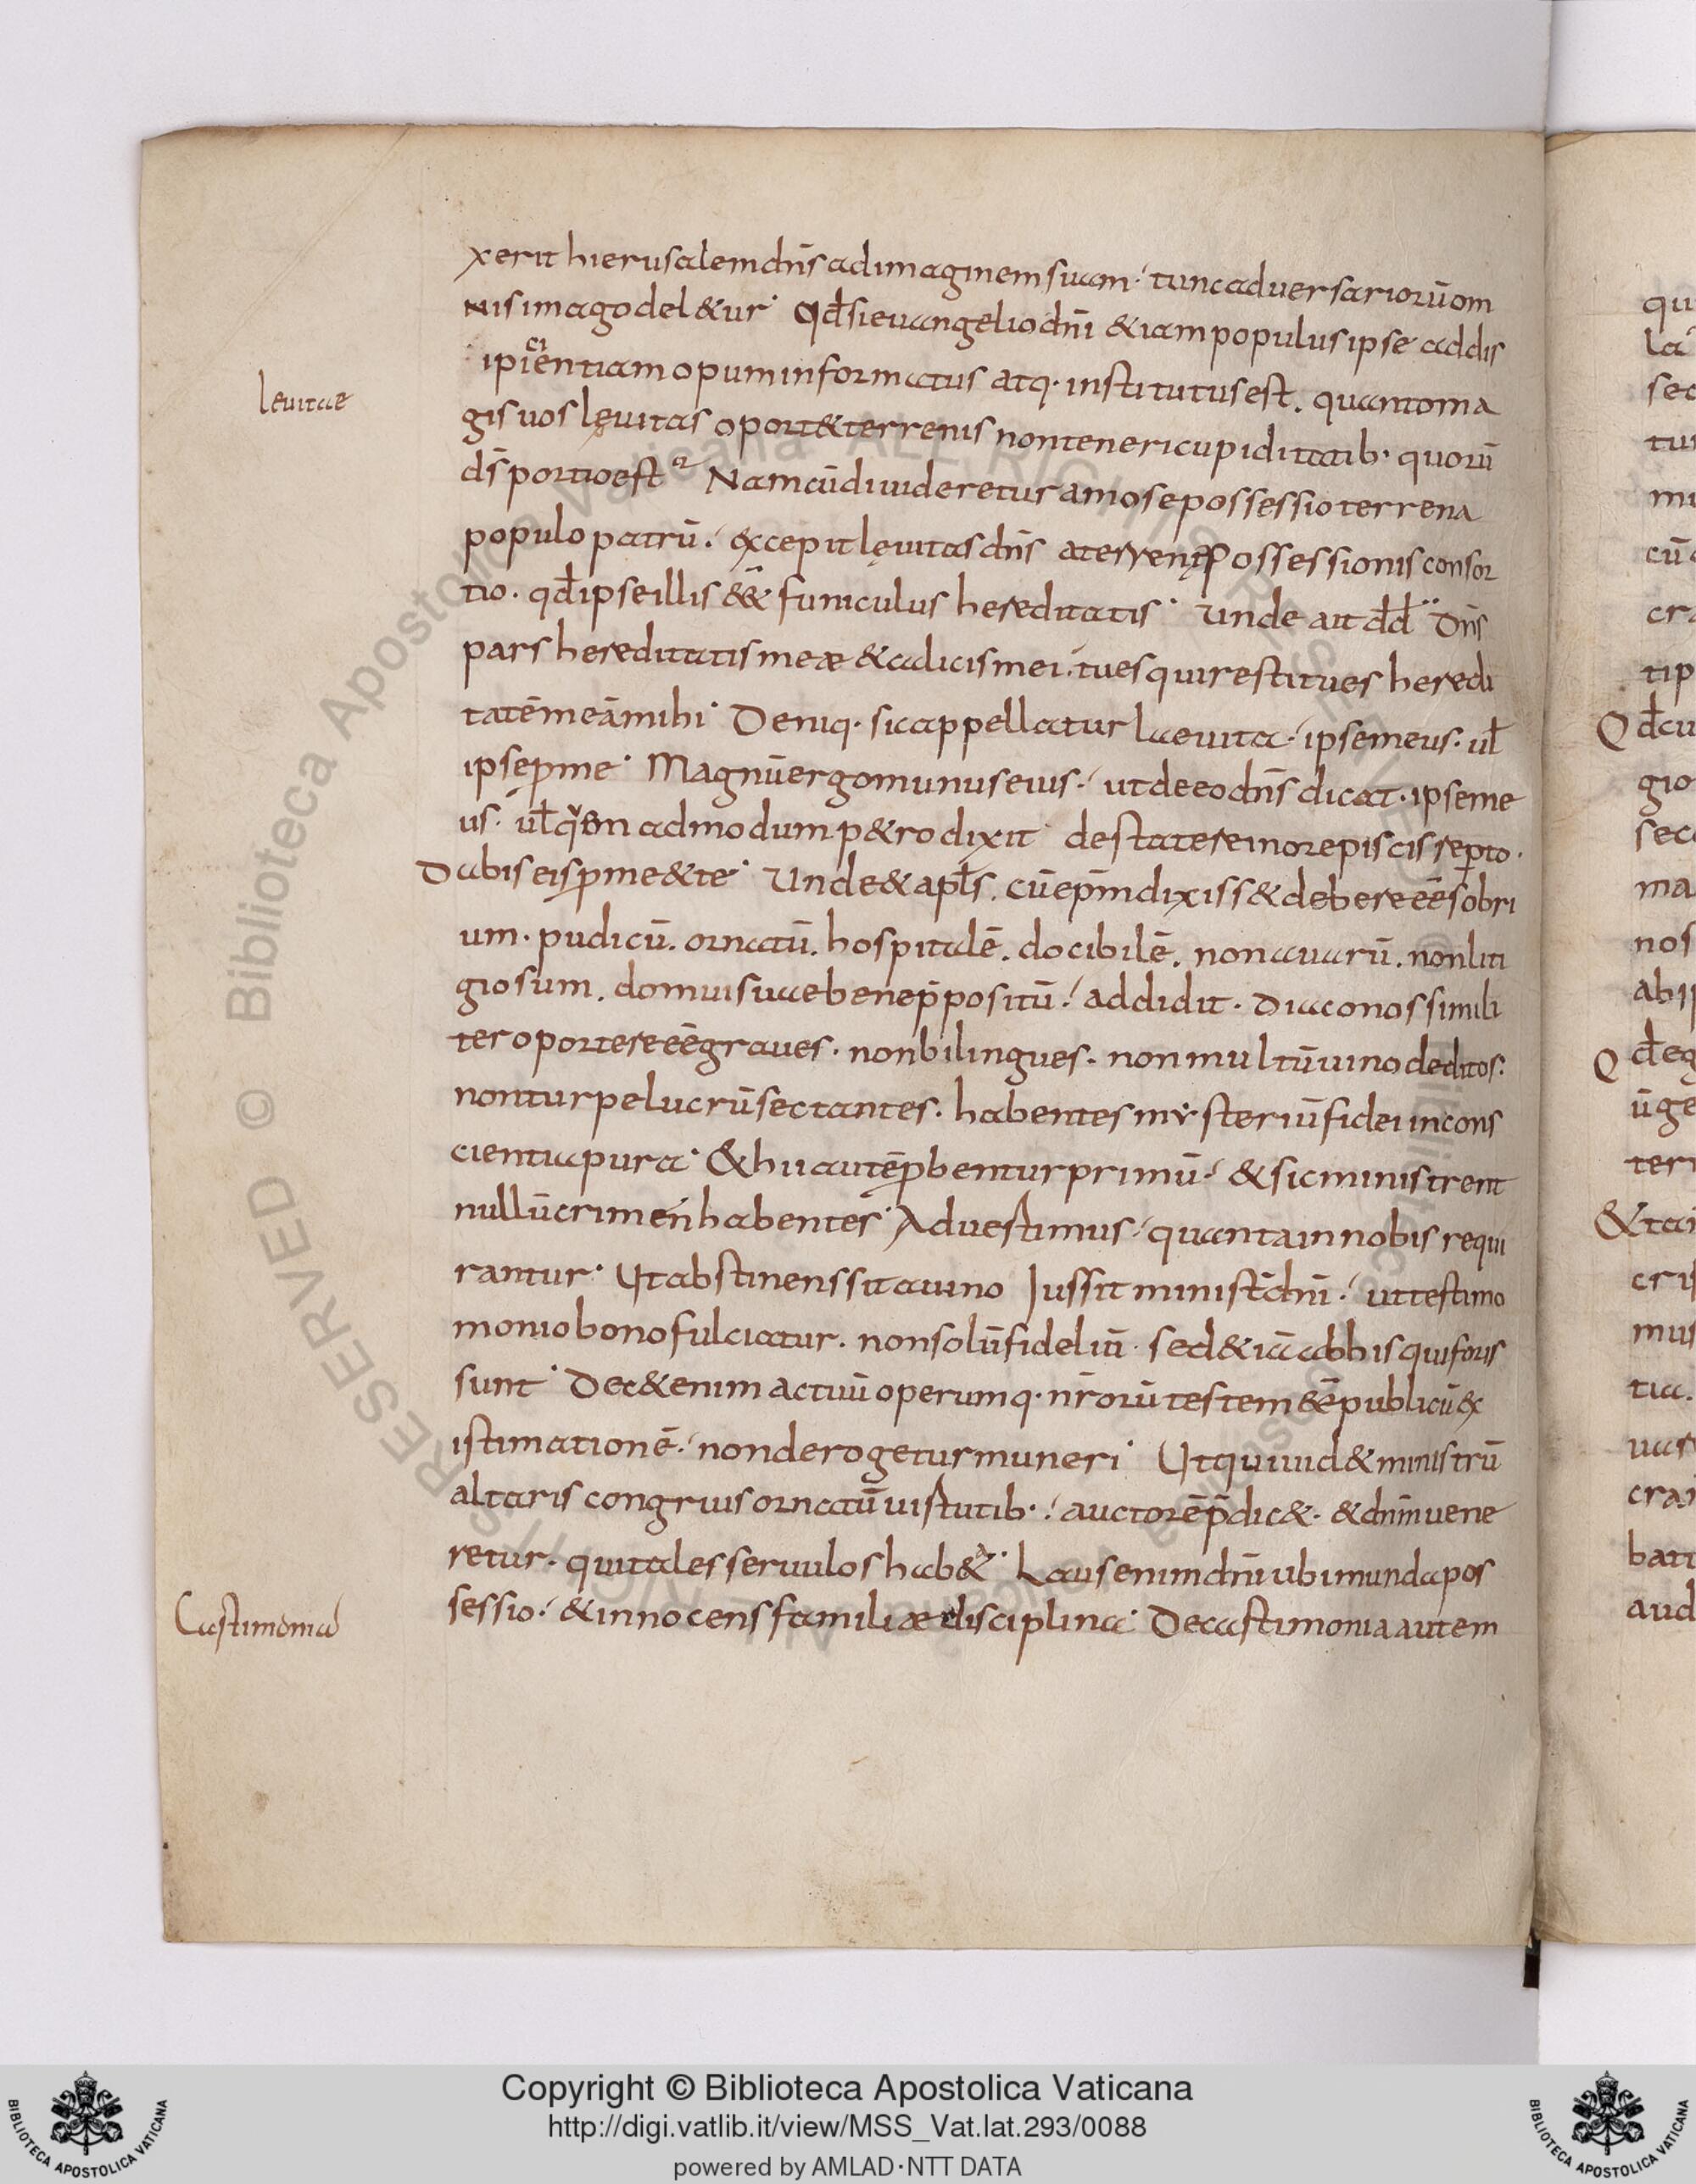 leuitae
xerit hierusalem dn̄s ad imaginem suam·/ tunc aduersariorū om
nis imago del&ur· Qđ si euangelio dnī &iam populus ipse ad dis
ipientiam opum informatus atq· institutus est. quanto ma
gis uos lęuitas oport& terrenis non teneri cupiditatib· quorū
ds̄ portio est Nam cū diuideretur a mose possessio terrena
populo patrū·/ excepit lęuitas dn̄s a terrenę possessionis consor
tio· qđ ipse illis ēē& funiculus hereditatis· Unde ait dd̄ Dn̄s
pars hereditatis meæ & calicis mei·/ tu es qui restitues heredi
tatē meā mihi· Deniq· sic appellatur laeuita·/ ipse meus· uł
ipse p̱ me· Magnū ergo munus eius·/ ut de eo dn̄s dicat· ipse me
us· uł quem admodum p&ro dixit de statere in ore piscis rep̱to·
Dabis eis p̱ me & te· Unde & apłs. cū ep̄m dixiss& debere ēē sobri
um· pudicū. ornatū. hospitalē. docibilē. non auarū. non liti
giosum. domui suae bene p̄positū·/ addidit· Diaconos simili
ter oportere ēē graues· non bilingues· non multū uino deditos:
non turpe lucrū sectantes· habentes mẏsteriū fidei in cons
cientia pura· & hii autē p̱bentur primū·/ & sic ministrent
nullū crimen habentes· Aduestimus·/ quanta in nobis requi
rantur· Ut abstinens sit a uino Jussit minist̄ dnī·/ ut testimo
monio bono fulciatur. non solū fideliū· sed &iā ab his qui foris
sunt· Dec& enim actuū operumq· nr̄orū testem ēē publicū ex
istimationē·/ non derogetur muneri· Ut qui uid& ministrū
altaris congruis ornatū uistutib·/ auctorē p̄dic&· & dnm̄ uene
retur· qui tales seruulos hab&· Laus enim dnī ubi munda pos
sessio·/ & innocens familiæ disciplina· De castimonia autem
Castimonia
qu
la
sec
tur
mu
cū
cra
tip
Qđ cu
gio
sec
ma
nos
ab
Qđ eg
ūge
teri
& ta
cris
mus
tia.
uas
cra
bat
aud
© Biblioteca Apostolica Vaticana ALL RIGHTS RESERVED
Copyright © Biblioteca Apostolica Vaticana
http://digi.vatlib.it/view/MSS_Vat.lat.293/0088
powered by AMLAD·NTT DATA
BIBLIOTECA APOSTOLICA VATICANA
BIBLIOTECA APOSTOLICA VATICANA